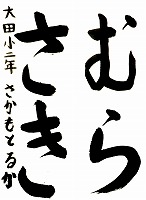 むら
さき
大田小二年 さかもとるか